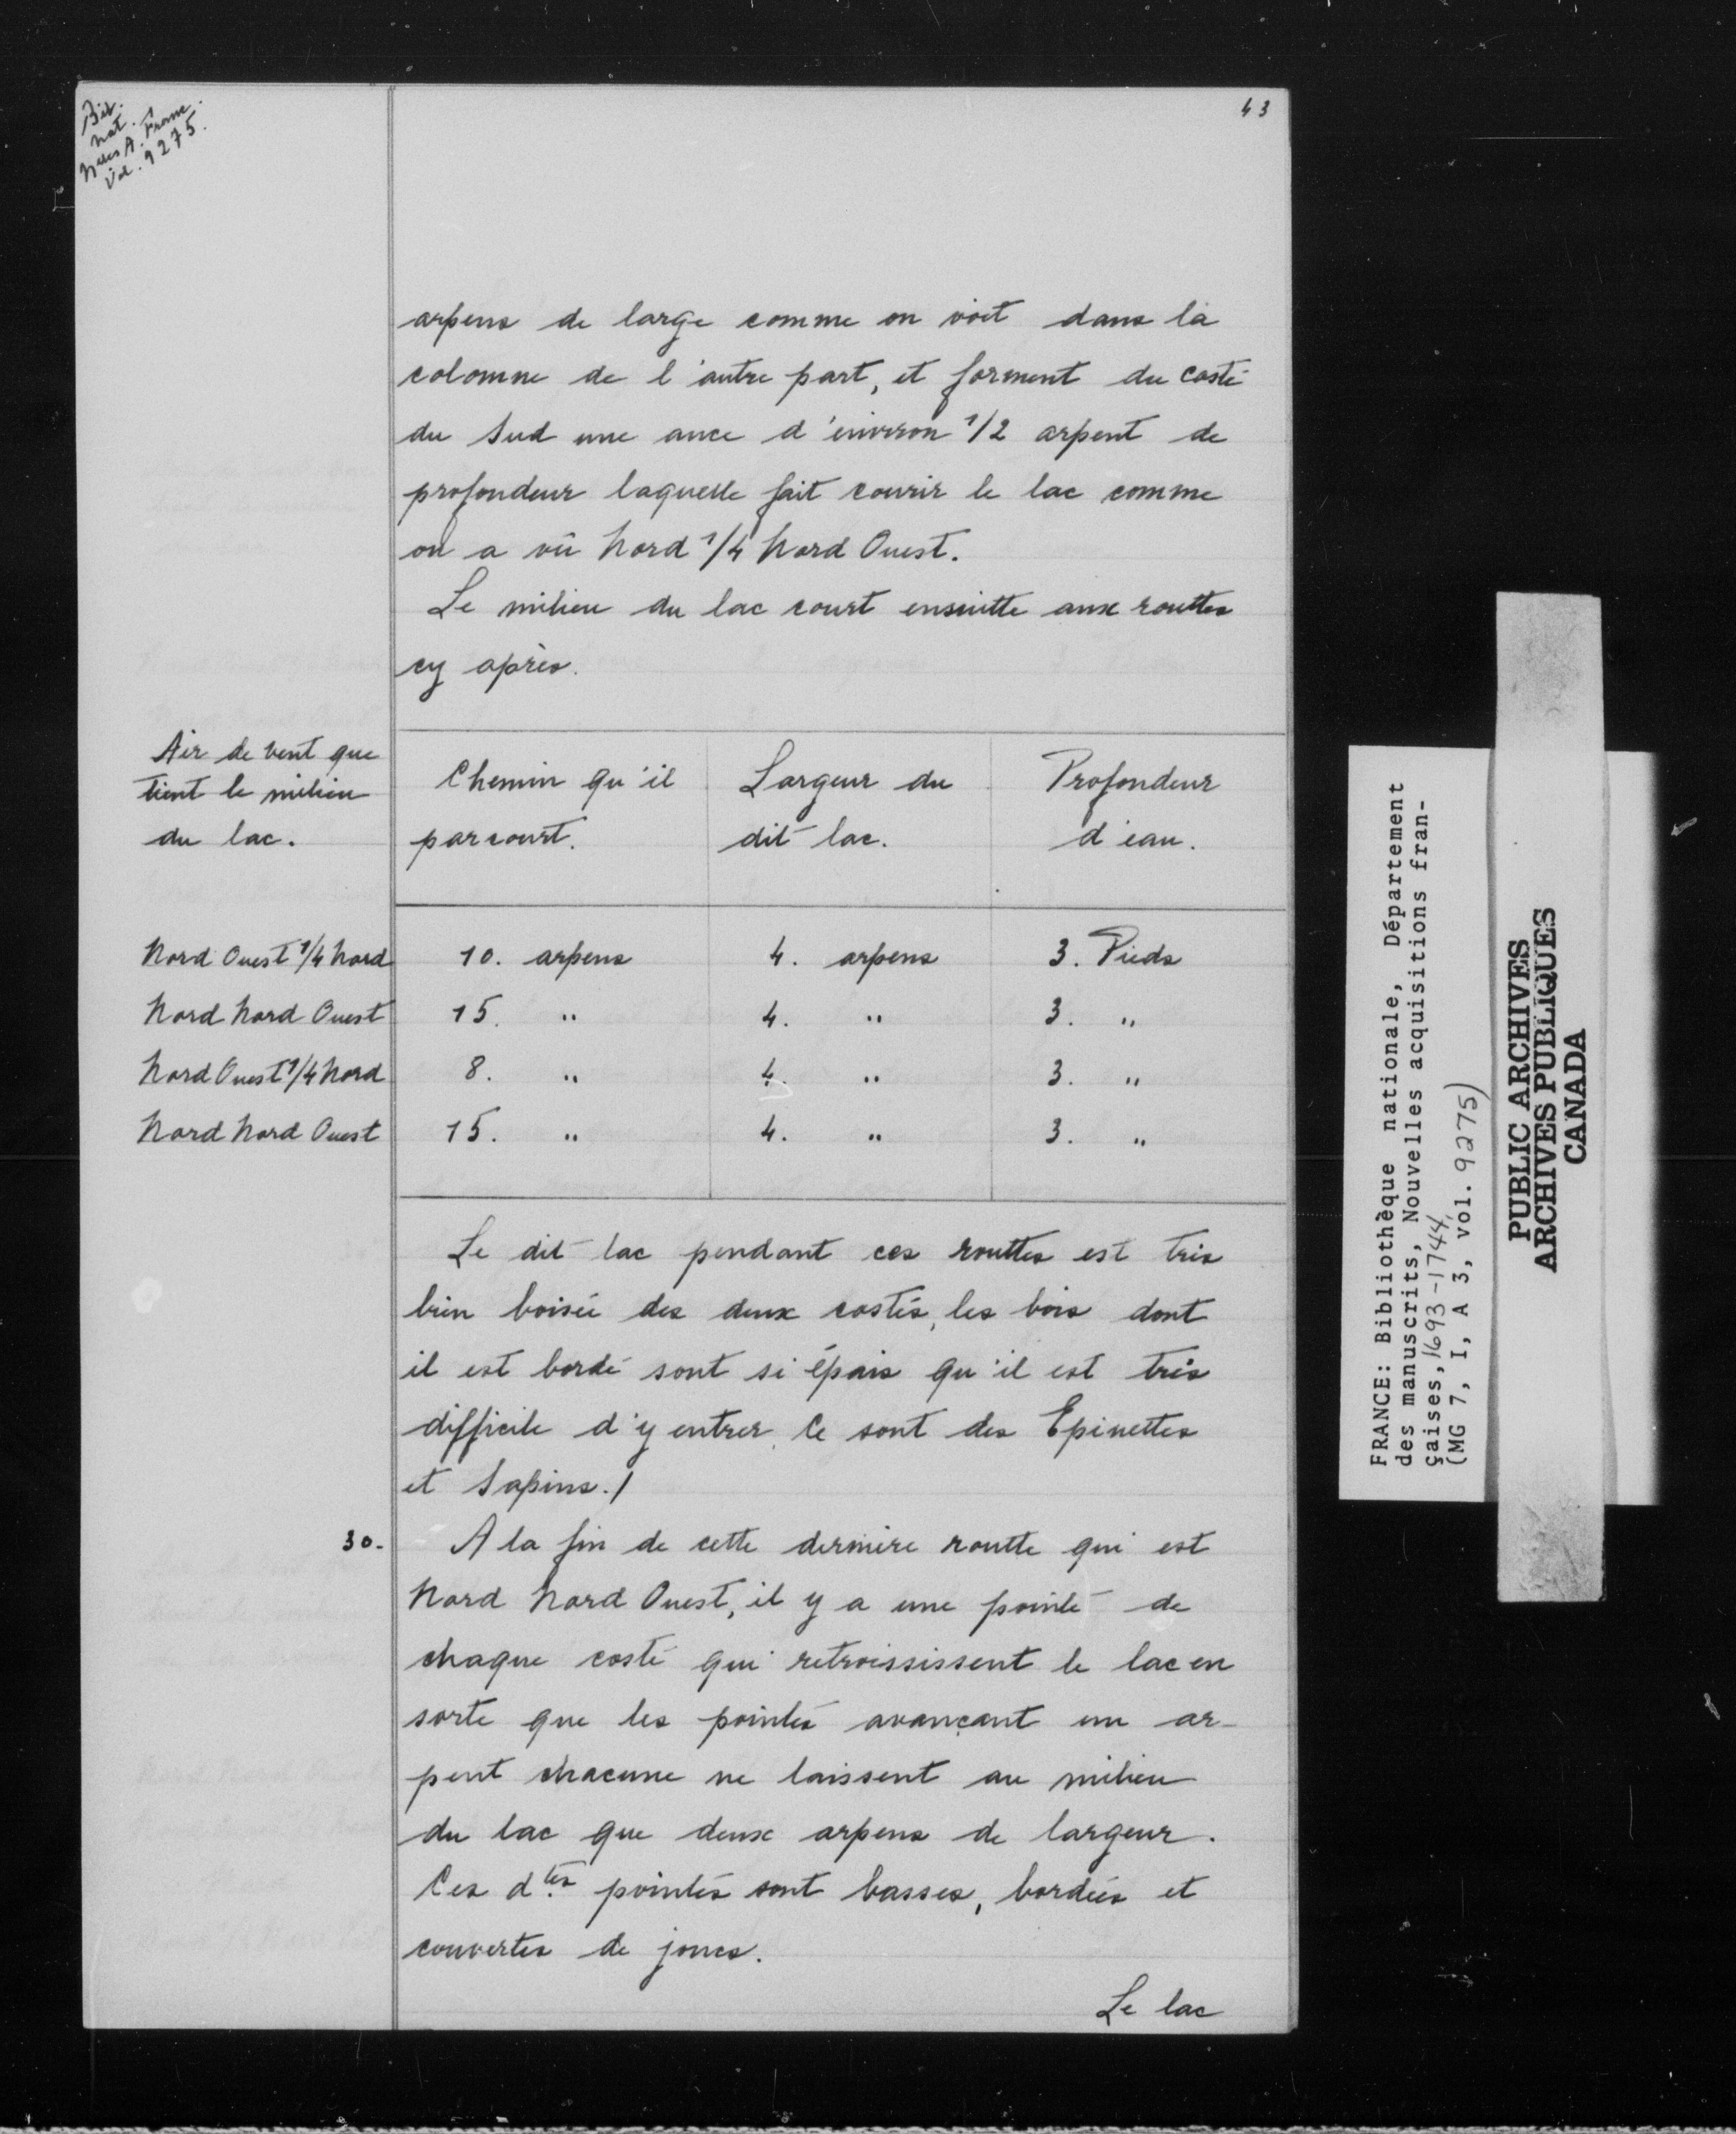 Bib.
nat.
Nelles A. Franc.
Vol. 9275.
43
arpens de large comme on voit dans la
colomne de l'autre part, et forment du costé
du Sud une ance d'environ 1/2 arpent de
profondeur laquelle fait courir le lac comme
on a vû Nord 1/4 Nord Ouest.
Le milieu du lac court ensuitte aux routtes
cy après.
Air de vent que
tient le milieu
du lac.
Chemin qu'il
parcourt.
Largeur du
dit lac.
Profondeur
d'eau.
Nord Ouest 1/4 Nord 10. arpens 4. arpens 3. Pieds
Nord Nord Ouest 15. " 4. " 3. "
Nord Ouest 1/4 Nord 8. " 4. " 3. "
Nord Nord Ouest 15. " 4. " 3. "
Le dit lac pendant ces routtes est très
bien boisée des deux costés, les bois dont
il est bordé sont si épais qu'il est très
difficile d'y entrer, Ce sont des Epinettes
et Sapins./
30. A la fin de cette dernière routte qui est
Nord Nord Ouest, il y a une pointe de
chaque costé qui retroississent le lac en
sorte que les pointes avançant un ar-
pent chacune ne laissent au milieu
du lac que deux arpens de largeur.
Ces d.tes pointes sont basses, bordées et
couvertes de joncs.
Le lac
FRANCE: Bibliothèque nationale, Département
des manuscrits, Nouvelles acquisitions fran-
çaises, 1693-1744
(MG 7, I, A 3, vol. 9275)
PUBLIC ARCHIVES
ARCHIVES PUBLIQUES
CANADA